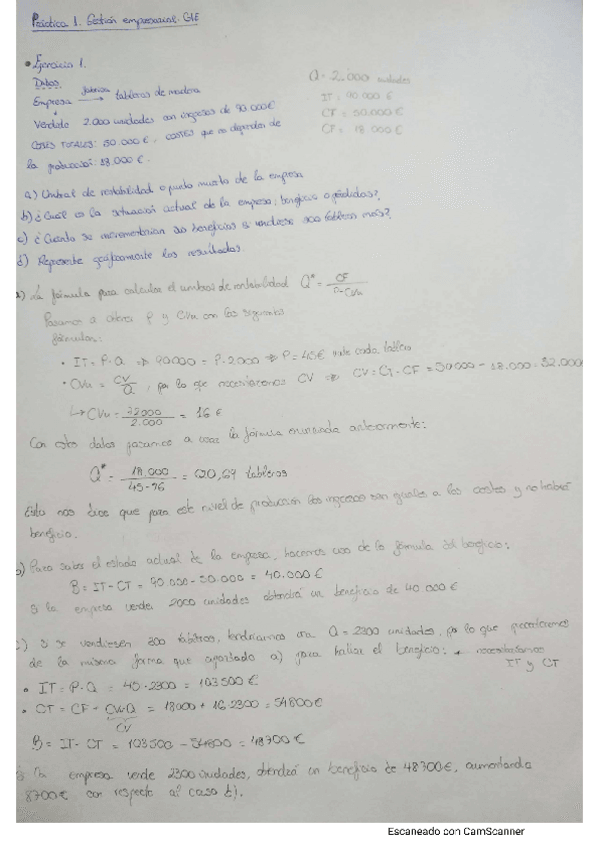 Práctica 1. Gestión empresarial. GIE
• Ejercicio 1.
Datos
Empresa fabrica → tableros de madera
Vendido 2.000 unidades con ingresos de 90.000€
COSTES TOTALES: 50.000€. COSTES que no dependen de
la producción: 18.000€.
Q = 2.000 unidades
IT = 90.000 €
CT = 50.000 €
CF = 18.000 €
a) Umbral de rentabilidad o punto muerto de la empresa
b) ¿Cuál es la situación actual de la empresa, beneficio o pérdidas?
c) ¿Cuánto se incrementarían los beneficios si vendiese 300 tableros más?
d) Represente gráficamente los resultados.
a) La fórmula para calcular el umbral de rentabilidad Q* = CF / P-CVu
Pasamos a obtener P y CVu con las siguientes
fórmulas:
• IT = P·Q ⇒ 90000 = P·2000 ⇒ P = 45€ vale cada tablero
• CVu = CV/Q, por lo que necesitamos CV ⇒ CV = CT - CF = 50000 - 18.000 = 32.000
↳ CVu = 32000 / 2.000 = 16 €
Con estos datos pasamos a usar la fórmula enunciada anteriormente:
Q* = 18.000 / 45-16 = 620,69 tableros
Esto nos dice que para este nivel de producción los ingresos son iguales a los costes y no habrá
beneficio.
b) Para saber el estado actual de la empresa, hacemos uso de la fórmula del beneficio:
B = IT - CT = 90.000 - 50.000 = 40.000 €
Si la empresa vende 2000 unidades obtendrá un beneficio de 40 000 €
c) Si se vendiesen 300 tableros, tendríamos una Q = 2300 unidades, por lo que procederemos
de la misma forma que apartado a) para hallar el beneficio: * necesitamos
IT y CT
• IT = P·Q = 45·2300 = 103500 €
• CT = CF + CVu·Q = 18000 + 16·2300 = 54800€
CV
B = IT - CT = 103500 - 54800 = 48700€
Si la empresa vende 2300 unidades, obtendrá un beneficio de 48700€, aumentando
8700€ con respecto al caso b).
Escaneado con CamScanner